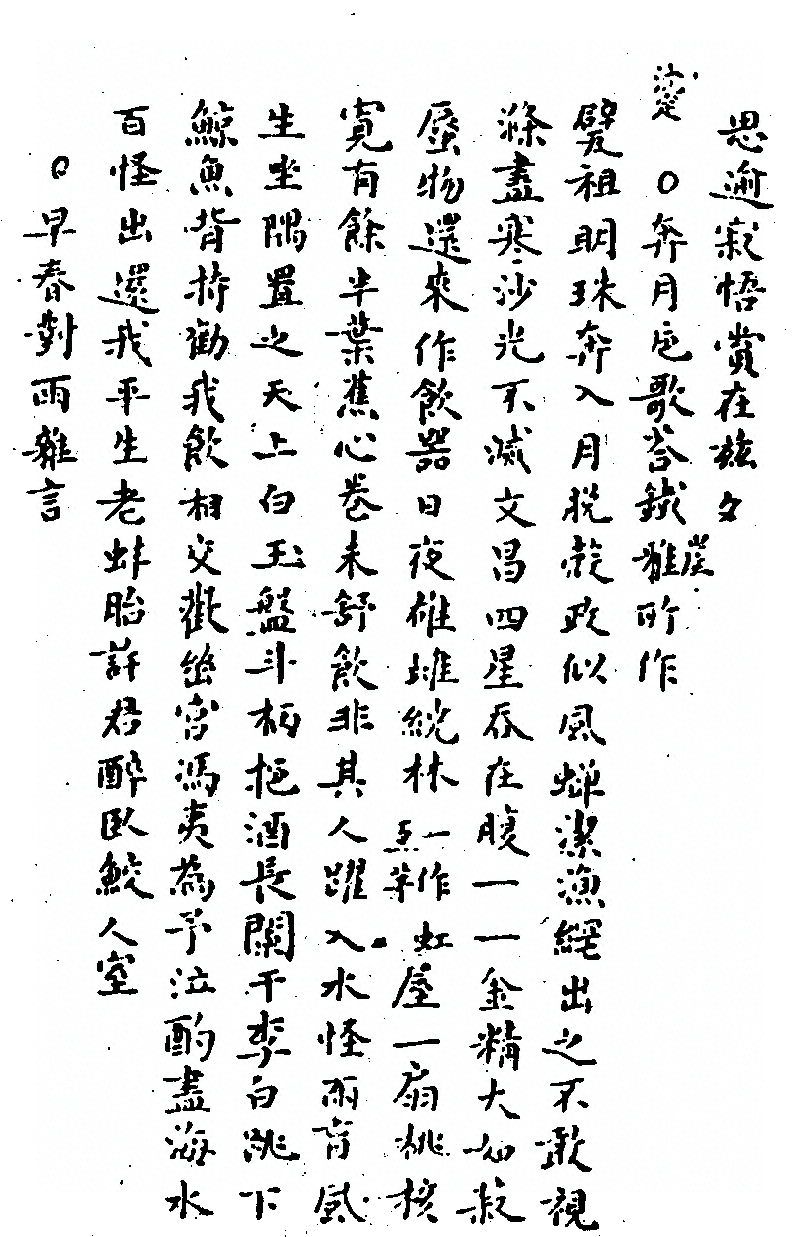 思逾寂悟賞在茲文
○奔月卮歌荅鐵雅所作
崖
甓祖明珠奔入月脫殼政似風蟬潔漁網出之不敢視
滌盡寒沙光不滅文昌四星吞在腹一一金精大如菽
蜃物還來作飲器日夜雄雌繞林一作虹屋一扇桃核
寬有餘半葉蕉心卷未舒飲非其人躍入水怪雨盲風
生坐隅置之天上白玉盤斗柄挹酒長闌干李白跳下
鯨魚背持勸我飲相交歡幽宮馮夷為予泣酌盡海水
百怪出還我平生老蚌胎許君醉臥鮫人室
○早春對雨雜言